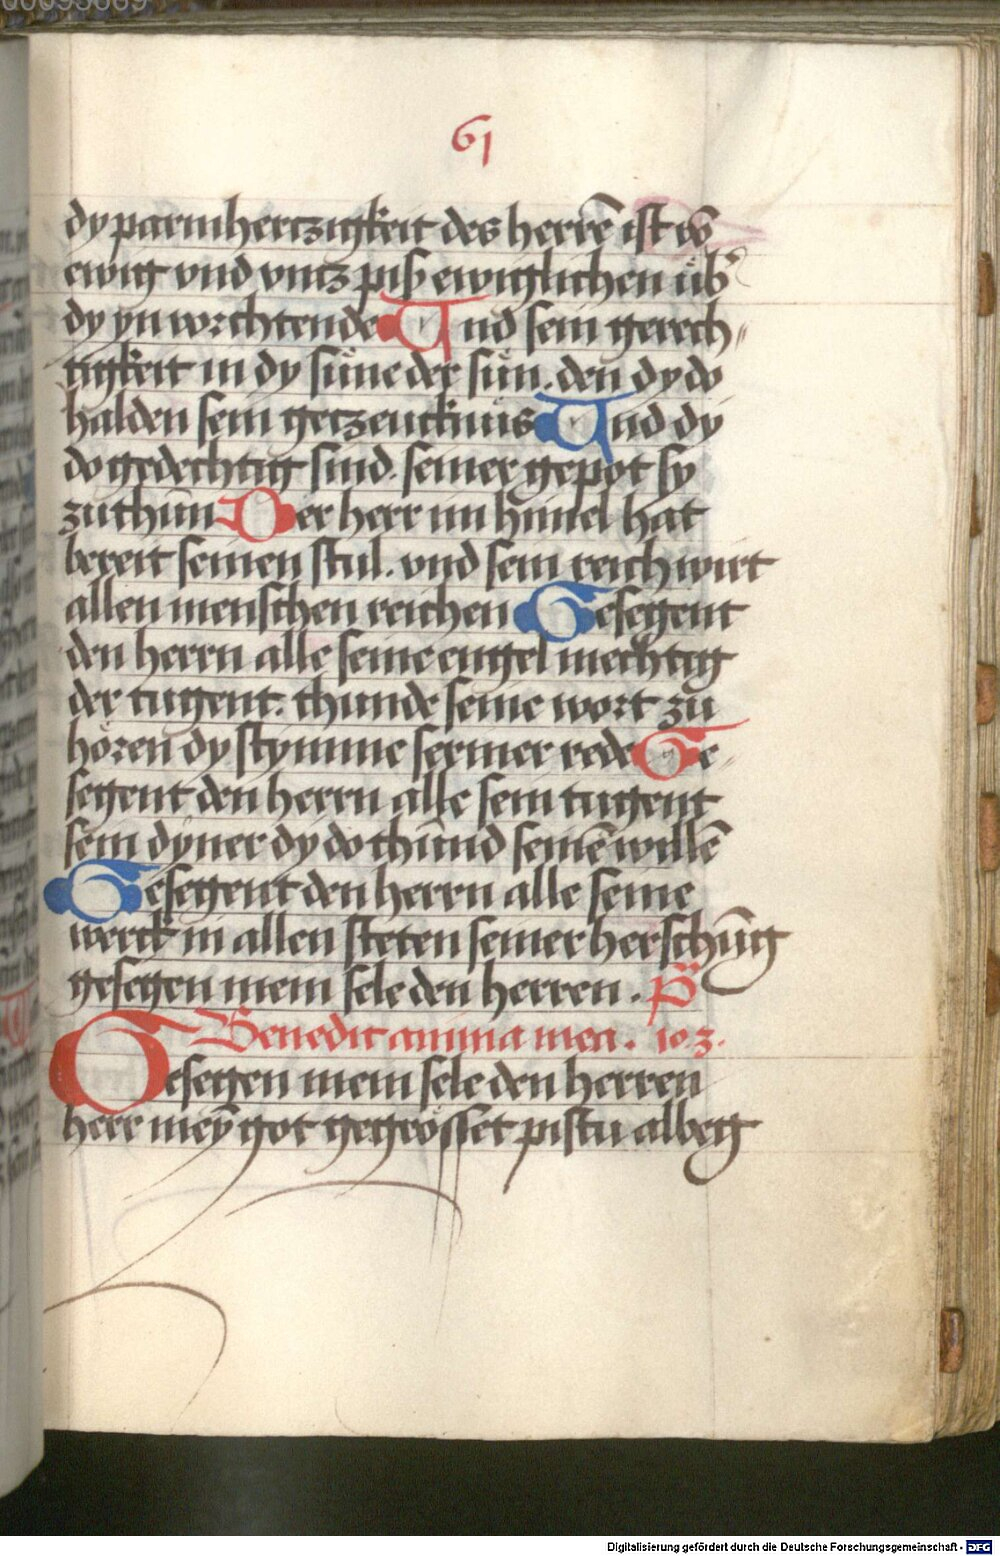 00095689
61
dy parmhertzigkeit des herrē ist vō
ewig vnd vntz piß ewiglichen üb̾
dy yn worchtende Und sein gerech〃
tigkeit in dy süne der sün. den dy do
halden sein getzeucknüs Und dy
do gedechtig sind. seiner gepot sy
zuthün Der herr im himel hat
bereit seinen stul. vnd sein reich wirt
allen menschen reichen Gesegent
den herrn alle seine engel mechtig
der tugent. thunde seine wort zu
hören dy stymme sermer rede Ge〃
segent den herrn alle sein tugent
sein dyner dy do thūnd seinē willē
Gesegent den herrn alle seine
werck in allen steten seiner herschūg
gesegen mein sele den herren . ps
Benedic anima mea . 103.
Gesegen mein sele den herren
herr mey̅ got gegrösset pistu albeg
Digitalisierung gefördert durch die Deutsche Forschungsgemeinschaft - DFG